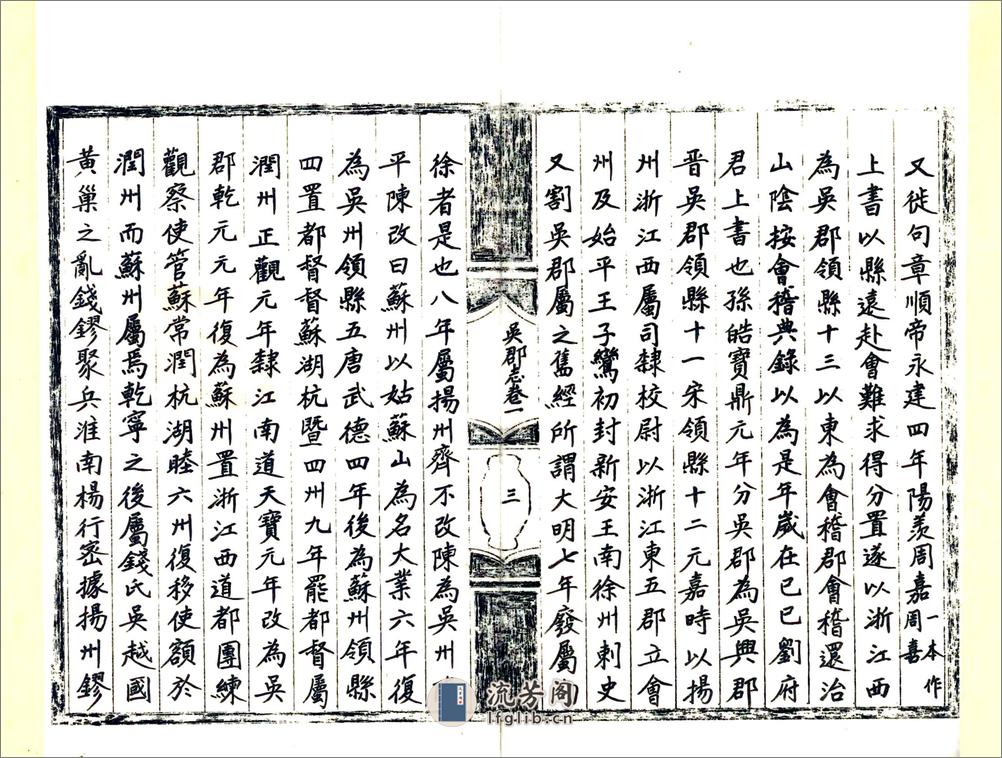 又徙句章順帝永建四年陽羨周嘉一本作周喜
上書以縣遠赴會難求得分置遂以浙江西
為吳郡領縣十三以東為會稽郡會稽還治
山陰按會稽典錄以為是年歲在已巳劉府
君上書也孫皓寶鼎元年分吳郡為吳興郡
晉吳郡領縣十一宋領縣十二元嘉時以揚
州浙江西屬司隸校尉以浙江東五郡立會
州及始平王子鸞初封新安王南徐州刺史
又割吳郡屬之舊經所謂大明七年發屬
吳郡志卷一
三
徐者是也八年屬揚州齊不改陳為吳州
平陳改曰蘇州以姑蘇山為名大業六年復
為吳州領縣五唐武德四年後為蘇州領縣
四置都督督蘇湖杭暨四州九年罷都督屬
潤州正觀元年隸江南道天寶元年改為吳
郡乾元元年復為蘇州置浙江西道都團練
觀察使管蘇常潤杭湖睦六州復移使額於
潤州而蘇州屬焉乾寧之後屬錢氏吳越國
黃巢之亂錢鏐聚兵淮南楊行密據揚州鏐
流芳阁
lfglib.cn